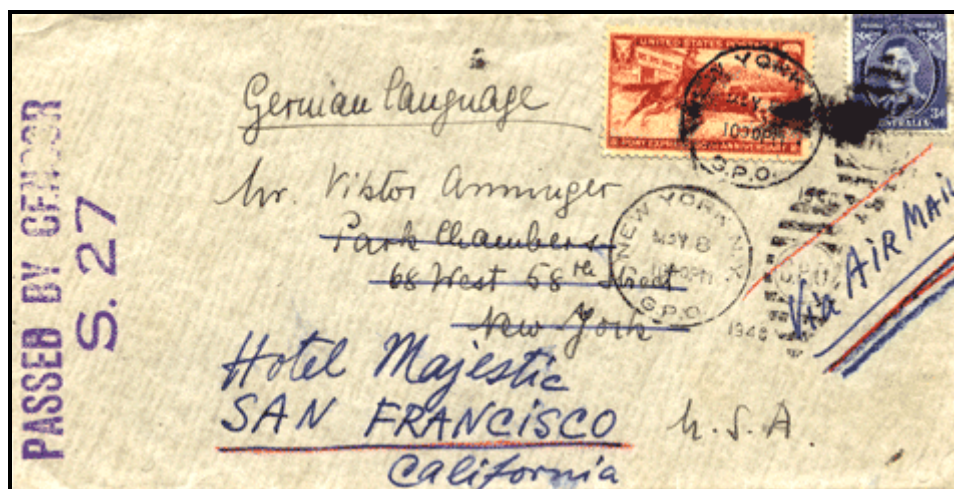 PASSED BY CENSOR
S. 27
German Language
UNITED STATES POSTAGE
PONY EXPRESS 80TH ANNIVERSARY
NEW YORK
MAY
1030PM
G.P.O.
3d
Mr. Viktor
Park Chambers
68 West 58th Street
New York
NEW YORK N.Y.
MAY 8
PM
G.P.O.
G.P.O.
1940
Via AIR MAIL
Hotel Majestic
SAN FRANCISCO
U.S.A.
California